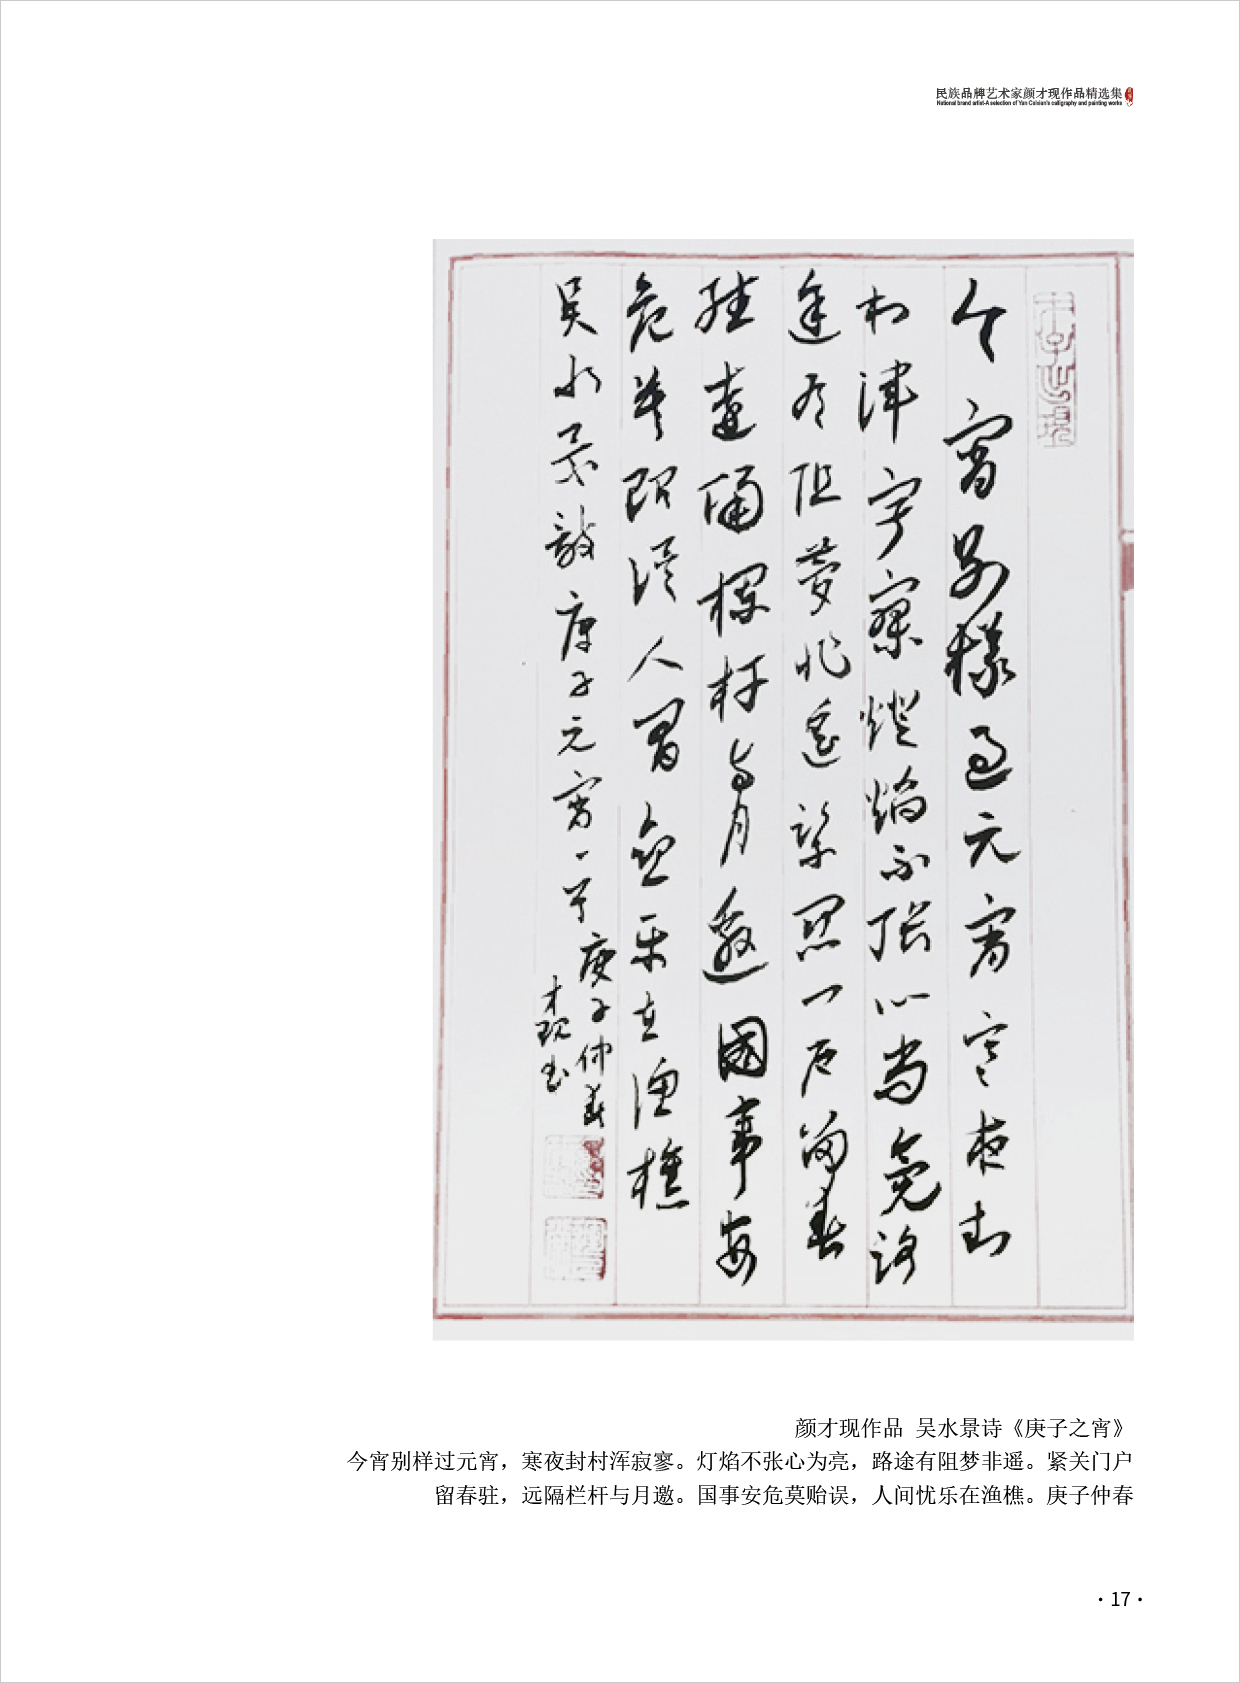 民族品牌艺术家颜才现作品精选集
National brand artist-A selection of Yan Caixian's calligraphy and painting works
今宵别樣过元宵寒夜封
村渾宇寥燈焰不張心尚亮路
途有阻夢非遥
户留春
驻遠隔欄杆与月邀國事安
危莫貽误人間
乐在漁樵
吴水景
庚子元宵
庚子仲春
才现书
颜才现作品 吴水景诗《庚子之宵》
今宵别样过元宵，寒夜封村浑寂寥。灯焰不张心为亮，路途有阻梦非遥。紧关门户
留春驻，远隔栏杆与月邀。国事安危莫贻误，人间忧乐在渔樵。庚子仲春
·17·